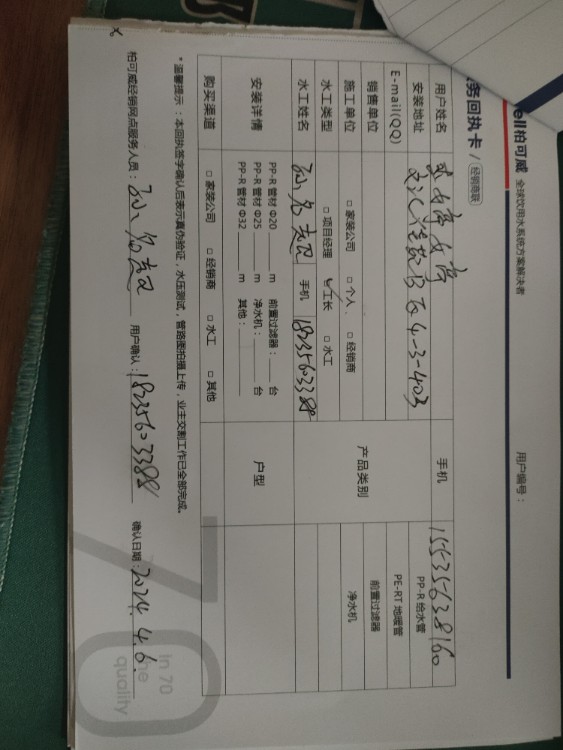 ell柏可威 全球饮用水系统方案解决者
用户编号：
务回执卡 / 经销商联
用户姓名
手机 15535638160
安装地址 4-3-403
PP-R 给水管
E-mail(QQ)
PE-RT 地暖管
销售单位
产品类别
前置过滤器
施工单位 □ 家装公司 □ 个人 □ 经销商
净水机
水工类型 □ 项目经理 ☑ 工长 □ 水工
水工姓名 手机 18235603388
安装详情
PP-R 管材 Φ20 m 前置过滤器： 台
PP-R 管材 Φ25 m 净水机： 台
PP-R 管材 Φ32 m 其他：
户型
购买渠道 □ 家装公司 □ 经销商 □ 水工 □ 其他
*温馨提示：本回执签字确认后表示真伪验证，水压测试，管路图拍摄上传，业主交割工作已全部完成。
柏可威经销网点服务人员： 用户确认：18235603388 确认日期：2024.4.6.
70
in 70
he
quality